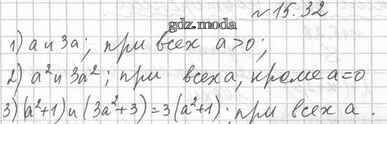 №15.32
gdz.moda
1) a и 3a; при всех a>0;
2) a² и 3a²; при всех a, кроме a=0
3) (a²+1) и (3a²+3)=3(a²+1); при всех a.